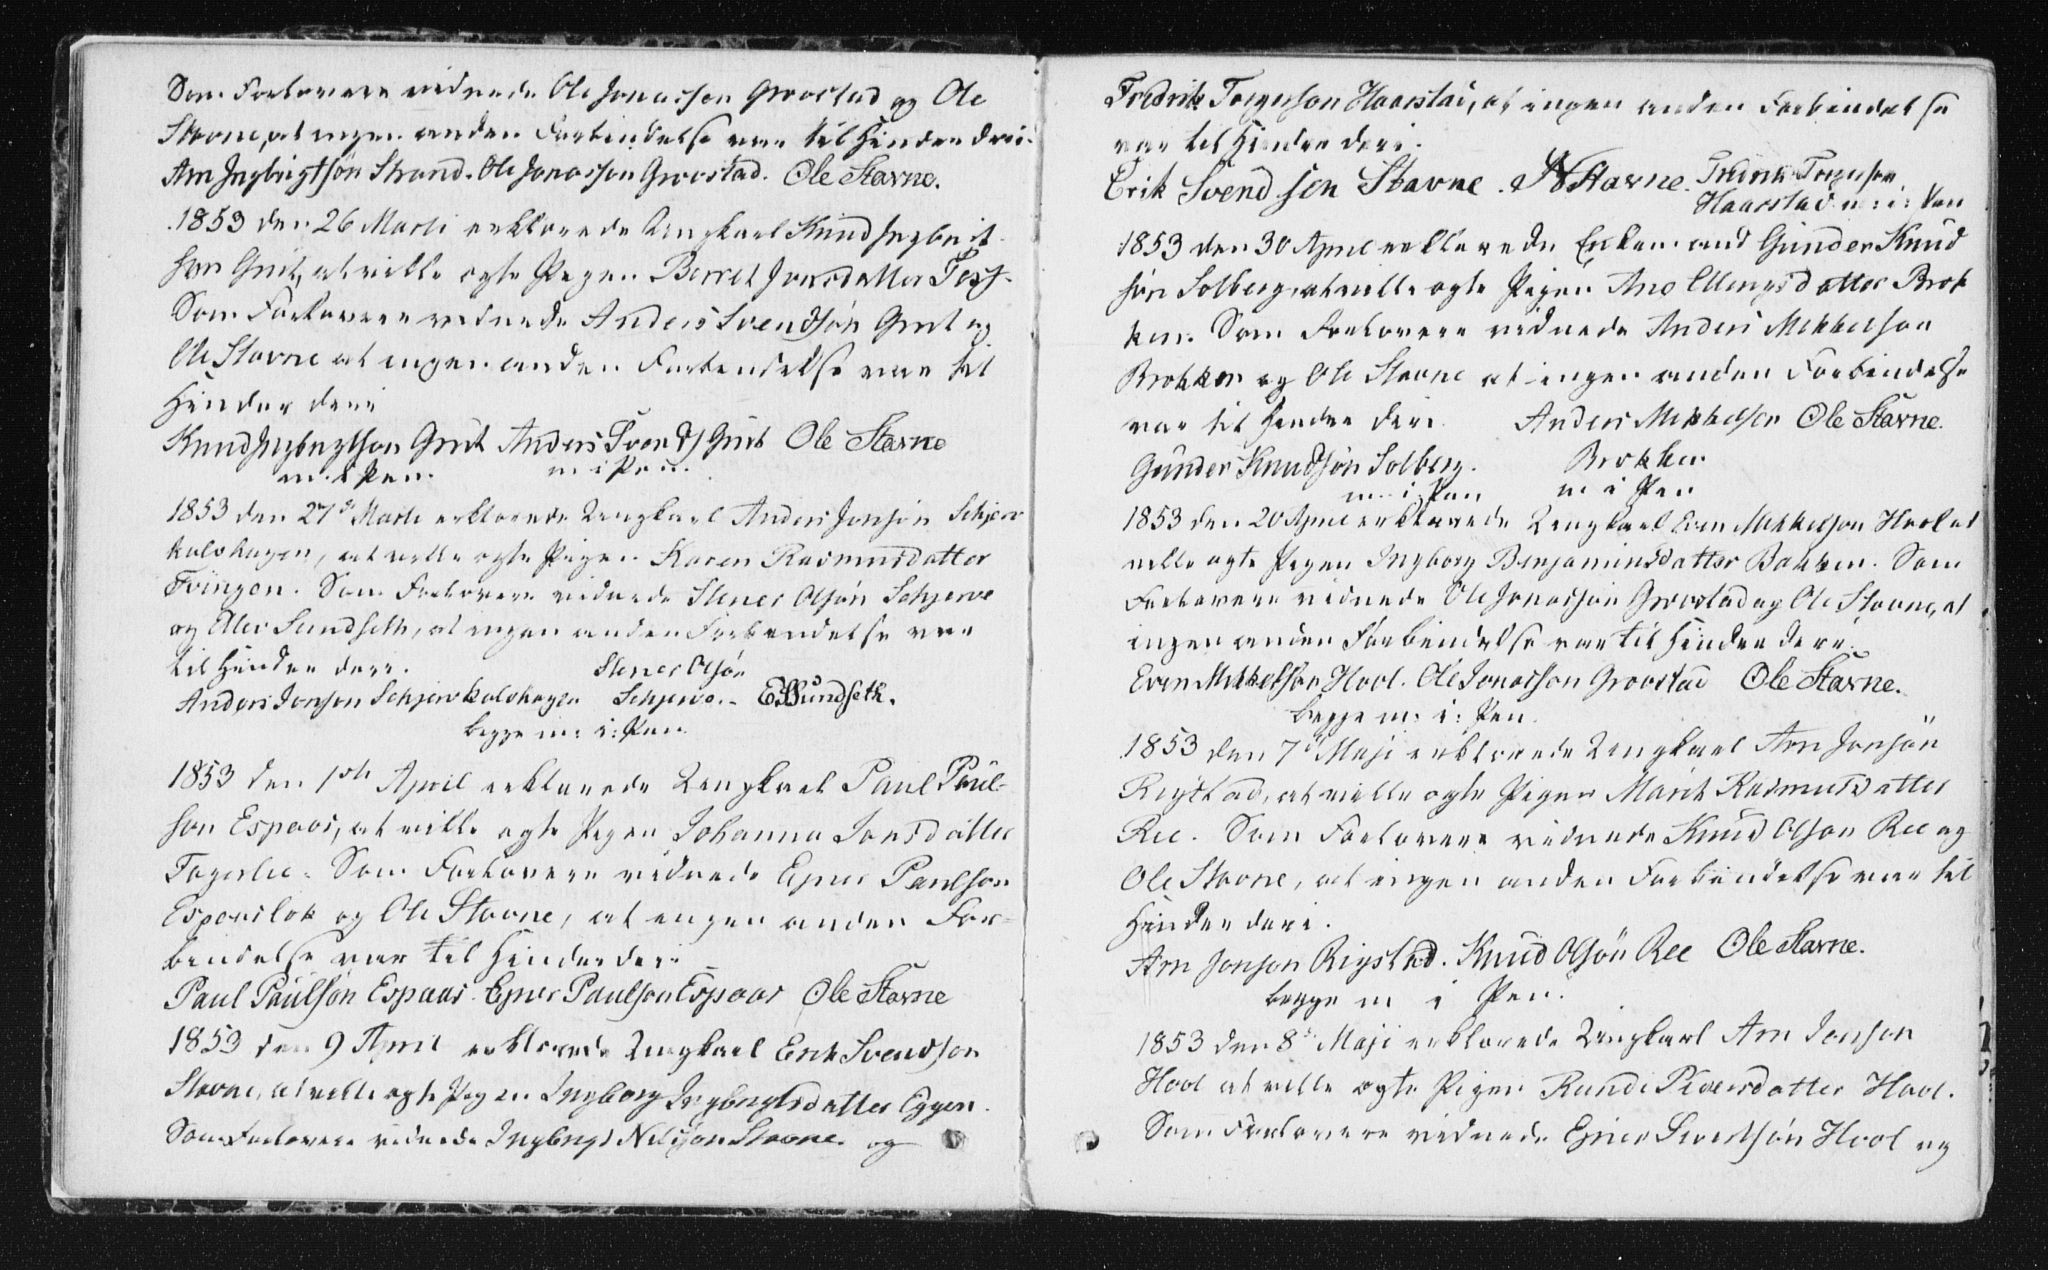 Som Forlovere vidnede Ole Jonasson Grovstad og Ole
Stavne, at ingen anden Forbindelse var til Hinder deri.
Arn Ingbrigtsön Strand. Ole Jonasson Grovstad. Ole Stavne.
1853 den 26 Marti erklærede Ungkarl Knud Ingbrigt-
sön Grut, at ville ægte Pigen Berret Jonsdatter
Som Forlovere vidnede Anders Svendsön Grut og
Ole Stavne at ingen anden Forbindelse var til
Hinder deri
Knud Ingbrigtson Grut Anders Svends Grut Ole Stavne
m. i Pen. m i Pen.
1853 den 27de Marti erklærede Ungkarl Anders Jonsön Schjerv
kolshagen, at ville ægte Pigen Karen Rasmusdatter
Tvingen. Som Forlovere vidnede Stener Olsön Schjerve
og Elev Sundseth, at ingen anden Forbindelse var
til Hinder deri. Stener Olsön
Anders Jonson Schjervkolshagen Schjerve. E Sundseth.
begge m: i: Pen.
1853 den 1ste April erklærede Ungkarl Paul Paul-
son Espaas, at ville ægte Pigen Johanna Jonsdatter
Fagerlie. Som Forlovere vidnede Ejner Paulson
Espaas og Ole Stavne, at ingen anden For-
bindelse var til Hinder deri
Paul Paulsön Espaas. Ejner Paulson Espaas Ole Stavne
1853 den 9 April erklærede Ungkarl Erik Svendson
Stavne, at ville ægte Pigen Ingborg Ingbrigtsdatter Eggen.
Som Forlovere vidnede Ingbrigt Nilsson Stavne. og
Fredrik Torgerson Haarstad, at ingen anden Forbindelse
var til Hinder deri.
Erik Svendsen Stavne. Stavne. Fredrik Torgerson
Haarstad m: i: Pen
1853 den 30 April erklærede Enkemand Gunder Knud
sön Solberg, at ville ægte Pigen Ane Ellengsdatter Brok
ken. Som Forlovere vidnede Anders Mekkelson
Brokken og Ole Stavne at ingen anden Forbindelse
var til Hinder deri. Anders Mekkelson Ole Stavne.
Gunder Knudsön Solberg. Brokken
m: i: Pen m i Pen
1853 den 20 April erklærede Ungkarl Even Mekkelson Hool at
ville ægte Pigen Ingborg Benjaminsdatter Bakken. Som
Forlovere vidnede Ole Jonasson Grovstad og Ole Stavne, at
ingen anden Forbindelse var til Hinder deri.
Even Mekkelson Hool. Ole Jonasson Grovstad Ole Stavne.
begge m: i: Pen.
1853 den 7de Maji erklærede Ungkarl Arn Jonsön
Rigstad, at ville ægte Pigen Marit Rasmusdatter
Ree. Som Forlovere vidnede Knud Olson Ree og
Ole Stavne, at ingen anden Forbindelse var til
Hinder deri.
Arn Jonson Rigstad. Knud Olsön Ree Ole Stavne.
begge m i Pen.
1853 den 8de Maji erklærede Ungkarl Arn Jonson
Hool at ville ægte Pigen Rande Pedersdatter Hool.
Som Forlovere vidnede Ejner Sivertsön Hool og